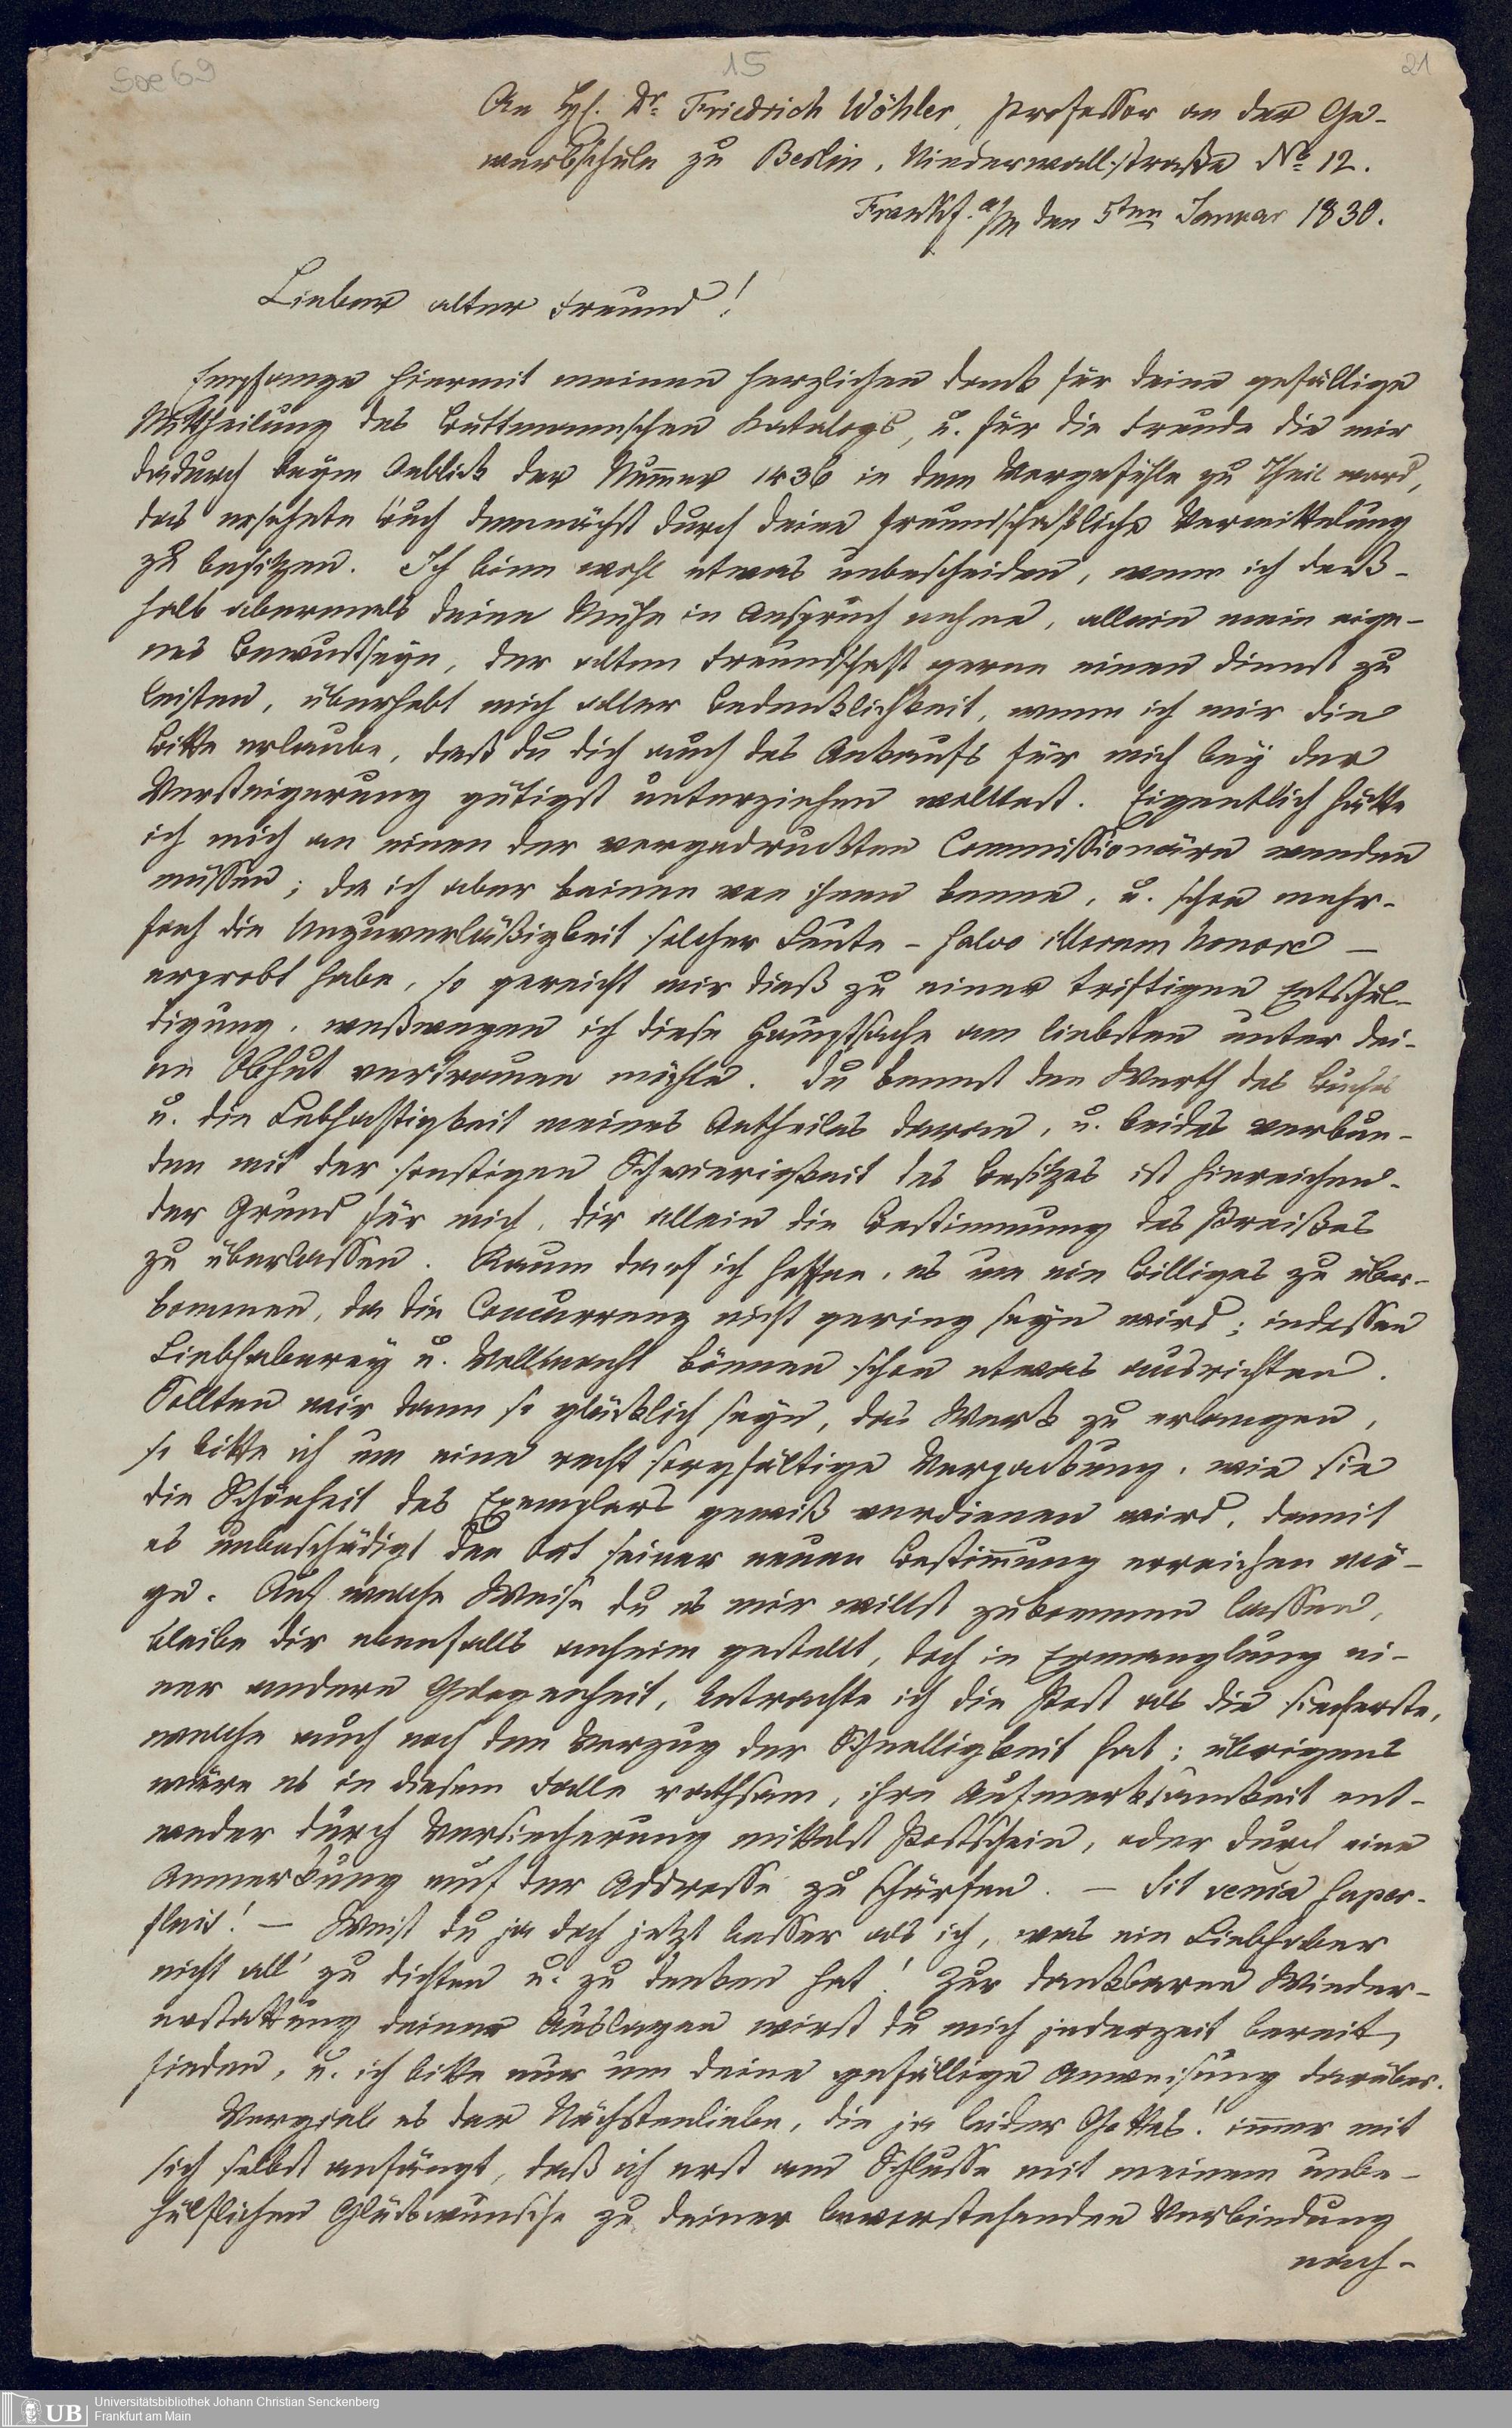 Soe 69
15
21
An Hh. Dr. Friedrich Wöhler, Professor an der Ge-
werbschule zu Berlin, Niederwallstraße No. 12.
Frankf. a/m den 5ten Januar 1830.
Lieber alter Freund!
Empfange hiermit meinen herzlichen Dank für deine gefällige
Mittheilung des Buttmannschen Katalogs, u. für die Freude die mir
dadurch beÿm Anblick der Num̄er 1436 in dem Vorgefühle zu Theil ward,
das ersehnte Buch demnächst durch deine freundschaftliche Vermittelung
zu besitzen. Ich binn wohl etwas unbescheiden, wenn ich deß-
halb abermals deine Mühe in Anspruch nehme, allein mein eige-
nes Bewustseyn, der alten Freundschaft gerne einen Dienst zu
leisten, überhebt mich aller Bedenklichkeit, wenn ich mir die
Bitte erlaube, daß du dich auch des Ankaufs für mich beÿ der
Versteigerung gütigst unterziehen wolltest. Eigentlich hätte
ich mich an einen der vorgedruckten Commissionäre wenden
müssen; da ich aber keinen von ihnen kenne, u. schon mehr-
fach die Unzuverläßigkeit solcher Leute – salvo illorum honore –
erprobt habe, so gereicht mir dieß zu einer triftigen Entschul-
digung, weßwegen ich diese Hauptsache am liebsten unter dei-
ne Obhut vertrauen möchte. Du kennst den Werth des Buches
u. die Lebhaftigkeit meines Antheiles daran, u. beides verbun-
den mit der sonstigen Schwierigkeit des Besitzes ist hinreichen-
der Grund für mich, dir allein die Bestimmung des Preißes
zu überlassen. Kaum darf ich hoffen, es um ein Billiges zu über-
kommen, da die Concurrenz nicht gering seyn wird; indessen
Liebhaberey u. Vollmacht können schon etwas ausrichten.
Sollten wir dann so glücklich seyn, das Werk zu erlangen,
so bitte ich um eine recht sorgfältige Verpackung, wie sie
die Schönheit des Exemplars gewiß verdienen wird, damit
es unbeschädigt den Ort seiner neuen Bestim̄ung erreichen mö-
ge. Auf welche Weise du es mir willst zukommen lassen,
bleibe dir ebenfalls anheim gestellt, doch in Ermanglung ei-
ner andern Gelegenheit, betrachte ich die Post als die sicherste,
welche auch noch den Vorzug der Schnelligkeit hat; übrigens
wäre es in diesem Falle rathsam, ihre Aufmerksamkeit ent-
weder durch Versicherung mittelst Postschein, oder durch eine
Anmerkung auf der Addresse zu schärfen. – Sit venia super-
fluis! – Weist du ja doch jetzt besser als ich, was ein Liebhaber
nicht all' zu dichten u. zu denken hat! Zur dankbaren Wieder-
erstattung deiner Auslagen wirst du mich jederzeit bereit
finden, u. ich bitte nur um deine gefällige Anweisung darüber.
Vergieb es der Nächstenliebe, die ja leider Gottes! im̄er mit
sich selbst anfängt, daß ich erst am Schlusse mit meinem unbe-
hülflichen Glückwunsche zu deiner bevorstehenden Verbindung
nach-
UB
Universitätsbibliothek Johann Christian Senckenberg
Frankfurt am Main